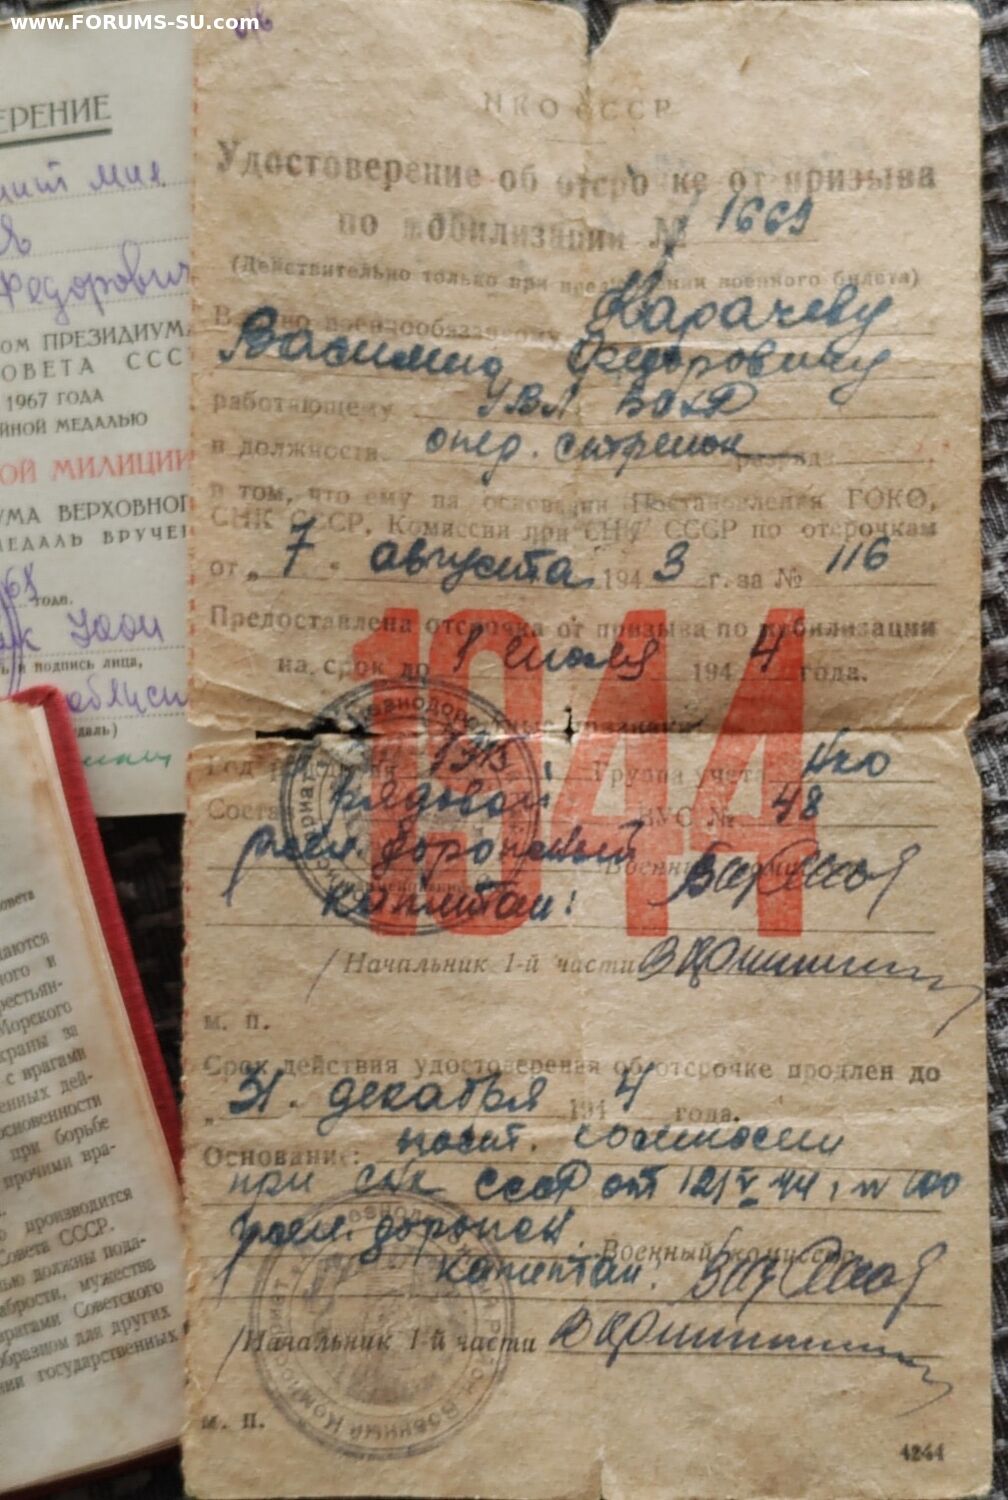 www.FORUMS-SU.com
НКО СССР
Удостоверение об отсрочке от призыва
по мобилизации № 1669
(Действительно только при предъявлении военного билета)
Выдано военнообязанному Карачеву
Василию Федоровичу
работающему УВЛ ВОХР
в должности опер. стрелок разряда
в том, что ему на основании Постановления ГОКО,
СНК СССР, Комиссии при СНК СССР по отсрочкам
от „7" августа 1943 г. за № 116
Предоставлена отсрочка от призыва по мобилизации
на срок до 1 июля 1944 года.
1944
Год рождения 1913 Группа учета НКО
Состав рядовой ВУС № 48
Военный комиссар
капитан:
Начальник 1-й части
м. п.
Срок действия удостоверения об отсрочке продлен до
„31" декабря 1944 года.
Основание:
при СНК СССР от № 100
Военный комиссар
капитан.
Начальник 1-й части
м. п.
4244
ЕРЕНИЕ
Федорович
ОМ ПРЕЗИДИУМА
ОВЕТА СССР
1967 ГОДА
ЙНОЙ МЕДАЛЬЮ
ОЙ МИЛИЦИИ
УМА ВЕРХОВНОГ
МЕДАЛЬ ВРУЧЕН
года.
и подпись лица,
даль)
овета
аются
ного и
рестьян-
Морского
охраны за
с врагами
енных дей-
основенности
при борьбе
прочими вра-
производится
Совета СССР.
ью должны пода-
абрости, мужества
врагами Советского
образном для других
нии государственных